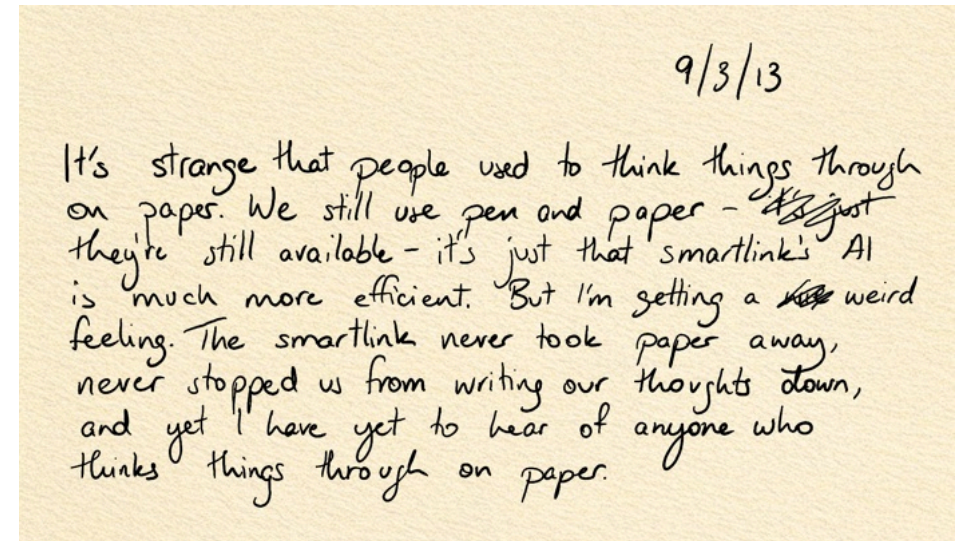 9/3/13
It's strange that people used to think things through
on paper. We still use pen and paper - it's just
they're still available - it's just that smartlink's AI
is much more efficient. But I'm getting a weird
feeling. The smartlink never took paper away,
never stopped us from writing our thoughts down,
and yet I have yet to hear of anyone who
thinks things through on paper.